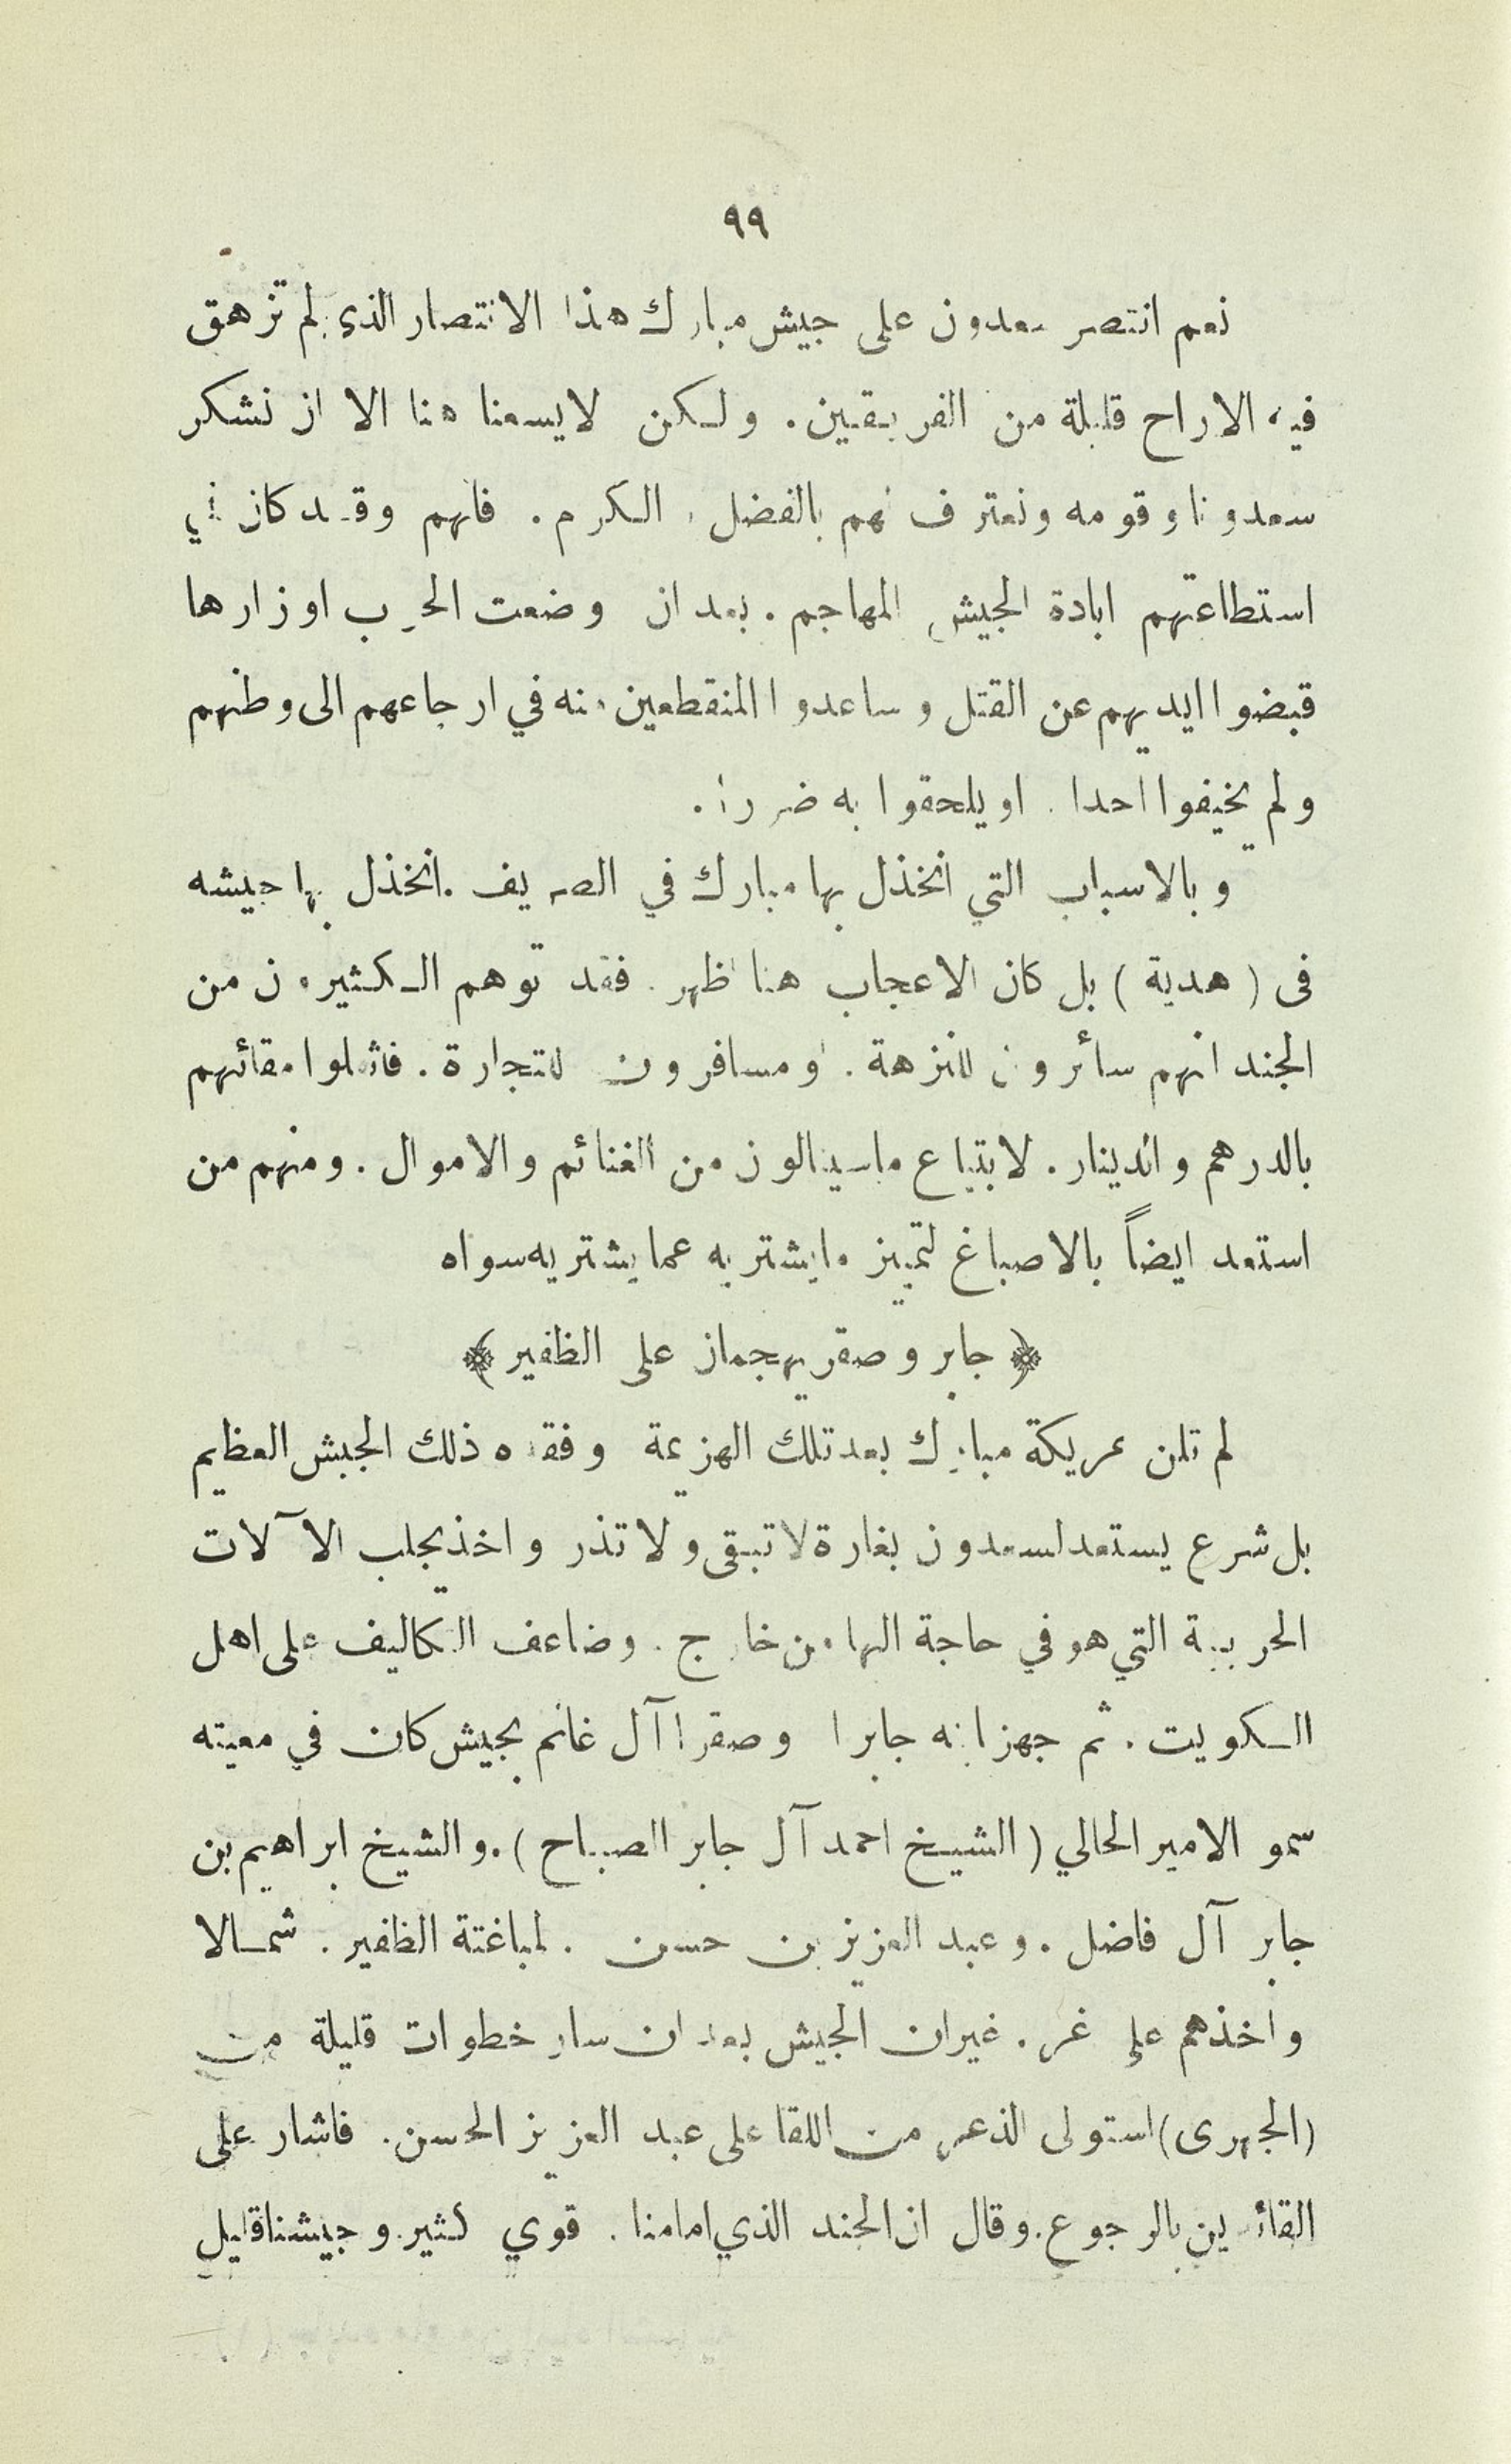 ٩٩
نعم انتصر سعدون على جيش مبارك هذا الانتصار الذي لم تزهق
فيه الاراح قليلة من الفريقين . ولكن لايسعنا هنا الا ان نشكر
سعدونا وقومه ونعترف لهم بالفضل والكرم . فانهم وقد كان في
استطاعتهم ابادة الجيش المهاجم . بعد ان وضعت الحرب اوزارها
قبضوا ايديهم عن القتل وساعدوا المنقطعين منه في ارجاعهم الى وطنهم
ولم يخيفوا احدا . او يلحقوا به ضررا .
وبالاسباب التي انخذل بها مبارك في الصريف . انخذل بها جيشه
فى ( هدية ) بل كان الاعجاب هنا اظهر . فقد توهم الكثيرون من
الجند انهم سائرون للنزهة . او مسافرون للتجارة . فاثملوا مقائهم
بالدرهم والدينار . لابتياع ماسينالون من الغنائم والاموال . ومنهم من
استعد ايضاً بالاصباغ لتمييز مايشتريه عما يشتريه سواه
﴿ جابر وصقر يهجمان على الظفير ﴾
لم تلن عريكة مبارك بعد تلك الهزيمة وفقده ذلك الجيش العظيم
بل شرع يستعد لسعدون بغارة لا تبقى ولا تذر واخذ يجلب الآلات
الحربية التي هو في حاجة اليها من خارج . وضاعف التكاليف على اهل
الكويت . ثم جهز ابنه جابرا وصقرا آل غانم بجيش كان في معيته
سمو الامير الحالي ( الشيخ احمد آل جابر الصباح ) . والشيخ ابراهيم بن
جابر آل فاضل . وعبد العزيز بن حسن . لمباغتة الظفير . شمالا
واخذهم على غر . غيران الجيش بعد ان سار خطوات قليلة من
( الجهرى ) استولى الذعر من اللقا على عبد العزيز الحسن . فاشار على
القائدين بالرجوع . وقال ان الجند الذي امامنا . قوي كثير . وجيشنا قليل